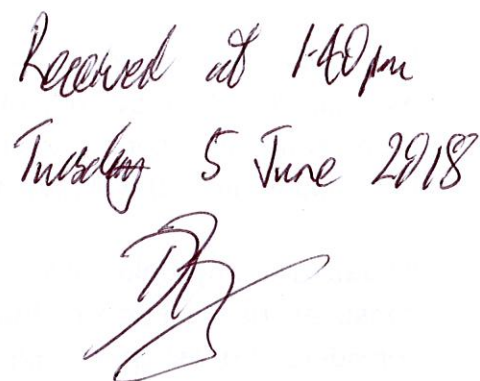 Received at 1-40pm
Tuesday 5 June 2018